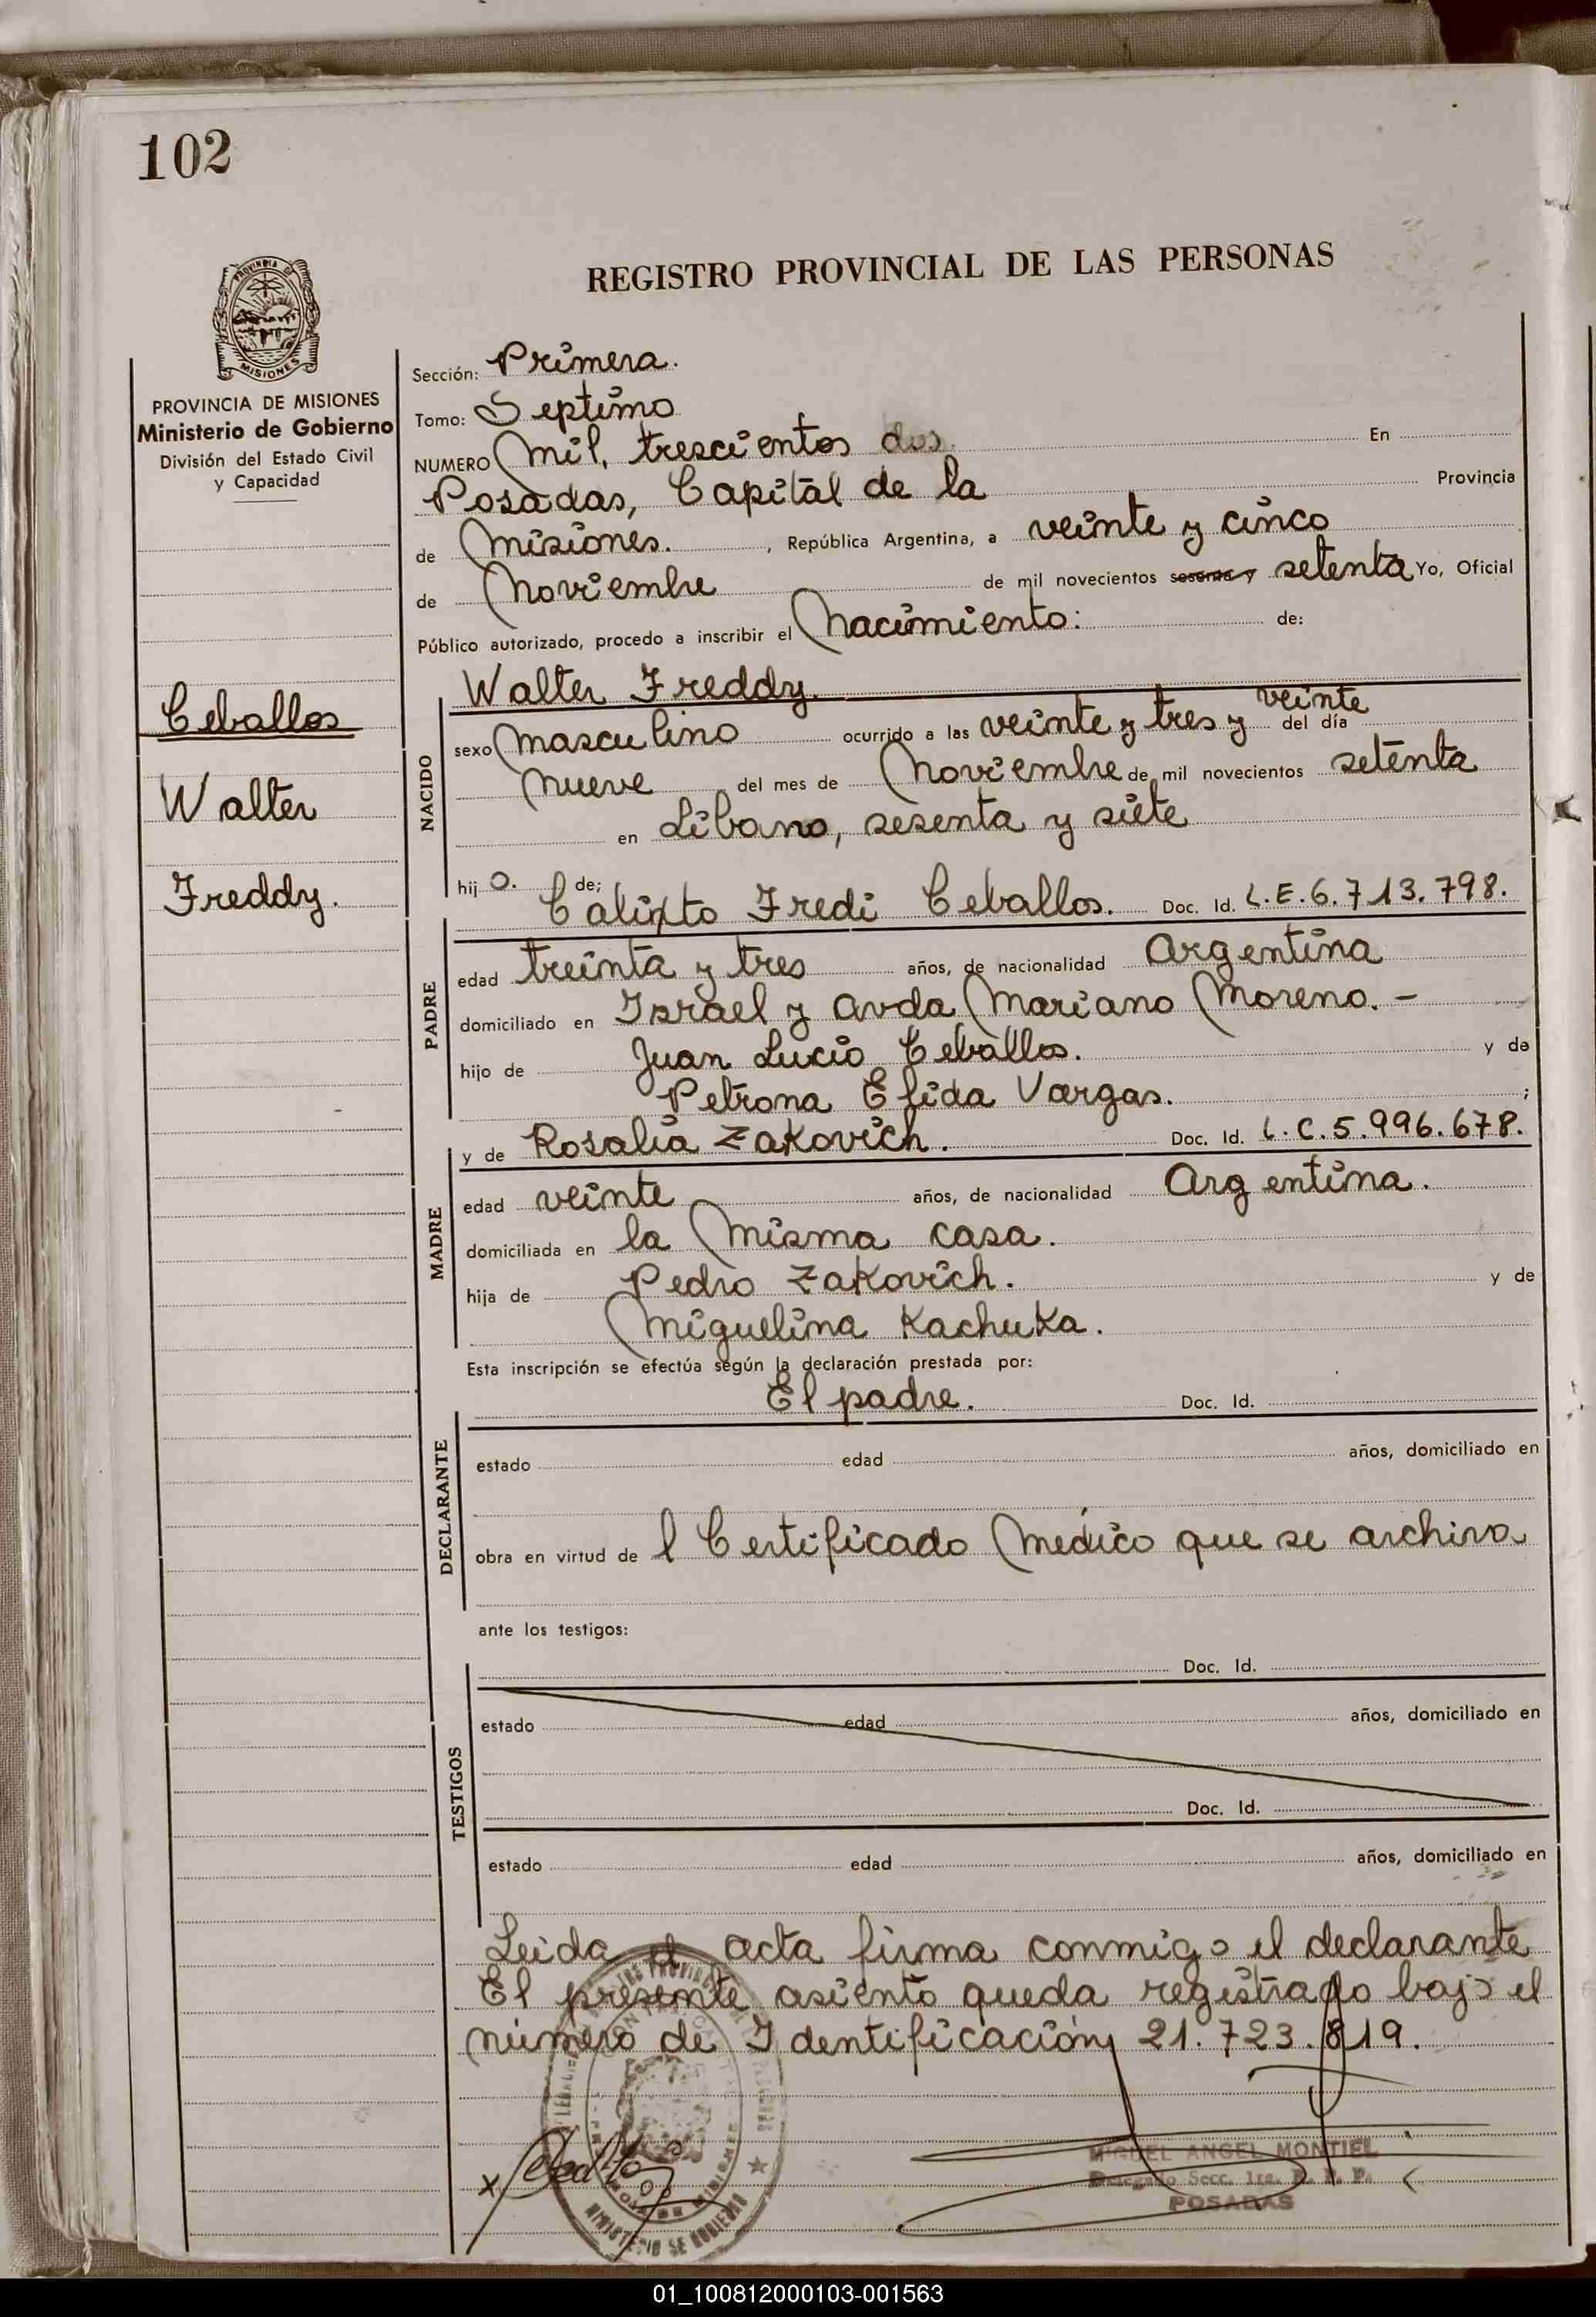 102
REGISTRO PROVINCIAL DE LAS PERSONAS
PROVINCIA DE MISIONES
PROVINCIA DE MISIONES
Ministerio de Gobierno
División del Estado Civil
y Capacidad
Ceballos
Walter
Freddy.
Sección: Primera.
Tomo: Septimo
NUMERO Mil, trescientos dos. En
Posadas, Capital de la Provincia
de Misiones. , República Argentina, a veinte y cinco
de Noviembre de mil novecientos sesenta y setenta Yo, Oficial
Público autorizado, procedo a inscribir el Nacimiento: de:
Walter Freddy.
NACIDO
sexo Masculino ocurrido a las veinte y tres y veinte del día
Nueve del mes de Noviembre de mil novecientos setenta
en Libano, sesenta y siete
hij o. de;
Calixto Fredi Ceballos. Doc. Id. L.E.6.713.798.
PADRE
edad treinta y tres años, de nacionalidad Argentina
domiciliado en Israel y Avda Mariano Moreno. -
hijo de Juan Lucio Ceballos. y de
Petrona Elida Vargas. ;
y de Rosalia Zakovich. Doc. Id. L.C.5.996.678.
MADRE
edad veinte años, de nacionalidad Argentina.
domiciliada en la Misma casa.
hija de Pedro Zakovich. y de
Miguelina Kachuka.
Esta inscripción se efectúa según la declaración prestada por:
El padre. Doc. Id.
DECLARANTE
estado edad años, domiciliado en
obra en virtud de l Certificado Médico que se archiva
ante los testigos:
Doc. Id.
TESTIGOS
estado edad años, domiciliado en
Doc. Id.
estado edad años, domiciliado en
Leida el acta firma conmigo el declarante
El presente asiento queda registrado bajo el
número de Identificación 21.723.819.
MIGUEL ANGEL MONTIEL
Delegado Secc. 1ra. R. P. P.
POSADAS
MINISTERIO DE GOBIERNO
01_100812000103-001563